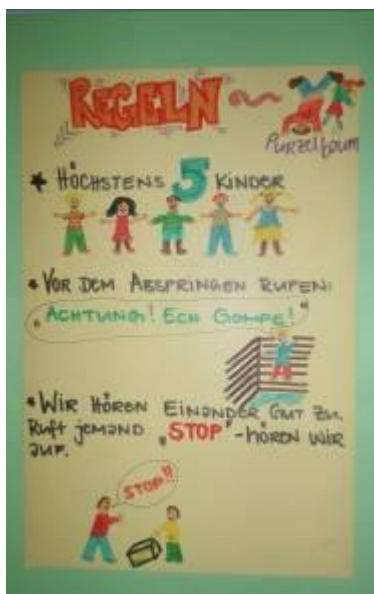 REGELN
Purzelbaum
* HÖCHSTENS 5 KINDER
• VOR DEM ABSPRINGEN RUFEN:
„ACHTUNG! ECH GOMPE!"
• WIR HÖREN EINANDER GUT ZU.
RUFT JEMAND „STOP"-HÖREN WIR
AUF.
STOP!!